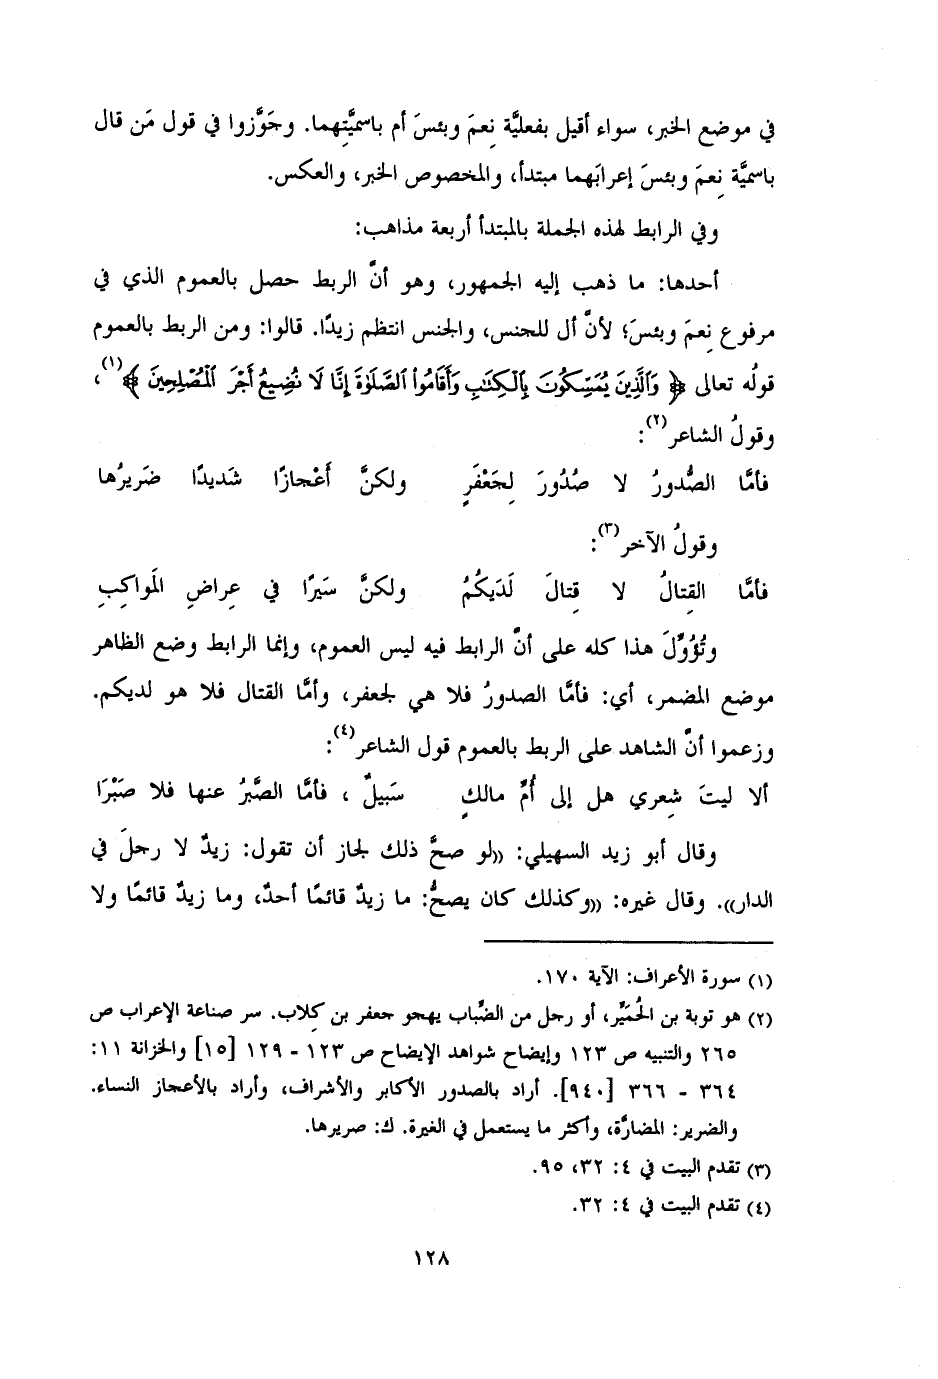 في موضع الخبر، سواء أقيل بفعليَّة نِعمَ وبئسَ أم باسميَّتِهما. وجَوَّزوا في قول مَن قال
باسميَّة نِعمَ وبئسَ إعرابَهما مبتدأ، والمخصوص الخبر، والعكس.
وفي الرابط لهذه الجملة بالمبتدأ أربعة مذاهب:
أحدها: ما ذهب إليه الجمهور، وهو أنَّ الربط حصل بالعموم الذي في
مرفوع نِعمَ وبئسَ؛ لأنَّ أل للجنس، والجنس انتظم زيدًا. قالوا: ومن الربط بالعموم
قولُه تعالى ﴿ وَٱلَّذِينَ يُمَسِّكُونَ بِٱلْكِتَٰبِ وَأَقَامُواْ ٱلصَّلَوٰةَ إِنَّا لَا نُضِيعُ أَجْرَ ٱلْمُصْلِحِينَ ﴾(١)،
وقولُ الشاعر(٢):
فأمَّا الصُّدورُ لا صُدُورَ لِجَعْفَرٍ ولكنَّ أَعْجازًا شَديدًا ضَريرُها
وقولُ الآخر(٣):
فأمَّا القِتالُ لا قِتالَ لَدَيكُمُ ولكنَّ سَيرًا في عِراضِ المَواكِبِ
وتُؤُوِّلَ هذا كله على أنَّ الرابط فيه ليس العموم، وإنما الرابط وضع الظاهر
موضع المضمر، أي: فأمَّا الصدورُ فلا هي لجعفر، وأمَّا القتال فلا هو لديكم.
وزعموا أنَّ الشاهد على الربط بالعموم قول الشاعر(٤):
ألا ليتَ شِعري هل إلى أُمِّ مالكٍ سَبيلٌ ، فأمَّا الصَّبرُ عنها فلا صَبْرَا
وقال أبو زيد السهيلي: ((لو صحَّ ذلك لجاز أن تقول: زيدٌ لا رجلَ في
الدار)). وقال غيره: ((وكذلك كان يصحُّ: ما زيدٌ قائمًا أحدٌ، وما زيدٌ قائمًا ولا
(١) سورة الأعراف: الآية ١٧٠.
(٢) هو توبة بن الحُمَيِّر، أو رجل من الضِّباب يهجو جعفر بن كِلاب. سر صناعة الإعراب ص
٢٦٥ والتنبيه ص ١٢٣ وإيضاح شواهد الإيضاح ص ١٢٣ - ١٢٩ [١٥] والخزانة ١١:
٣٦٤ - ٣٦٦ [٩٤٠]. أراد بالصدور الأكابر والأشراف، وأراد بالأعجاز النساء.
والضرير: المضارَّة، وأكثر ما يستعمل في الغيرة. ك: صريرها.
(٣) تقدم البيت في ٤: ٣٢، ٩٥.
(٤) تقدم البيت في ٤: ٣٢.
١٢٨